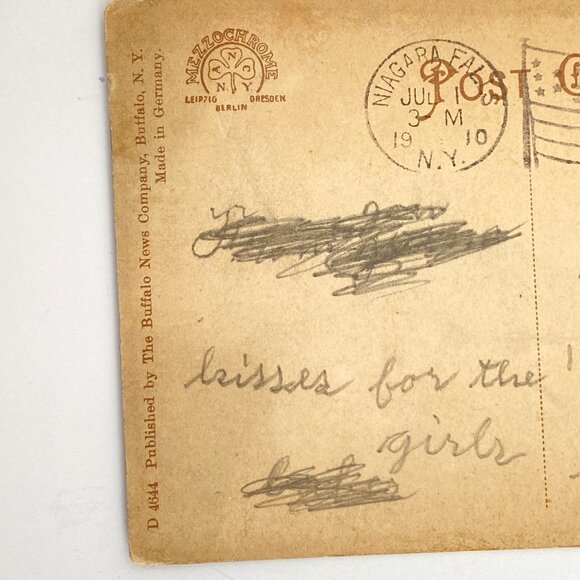 MEZZOCHROME
ANCO
N.Y.
LEIPZIG DRESDEN
BERLIN
NIAGARA FALLS
JUL 1
3 M
19 10
N.Y.
POST
kisses for the
girls
D 4644 Published by The Buffalo News Company, Buffalo, N. Y.
Made in Germany.